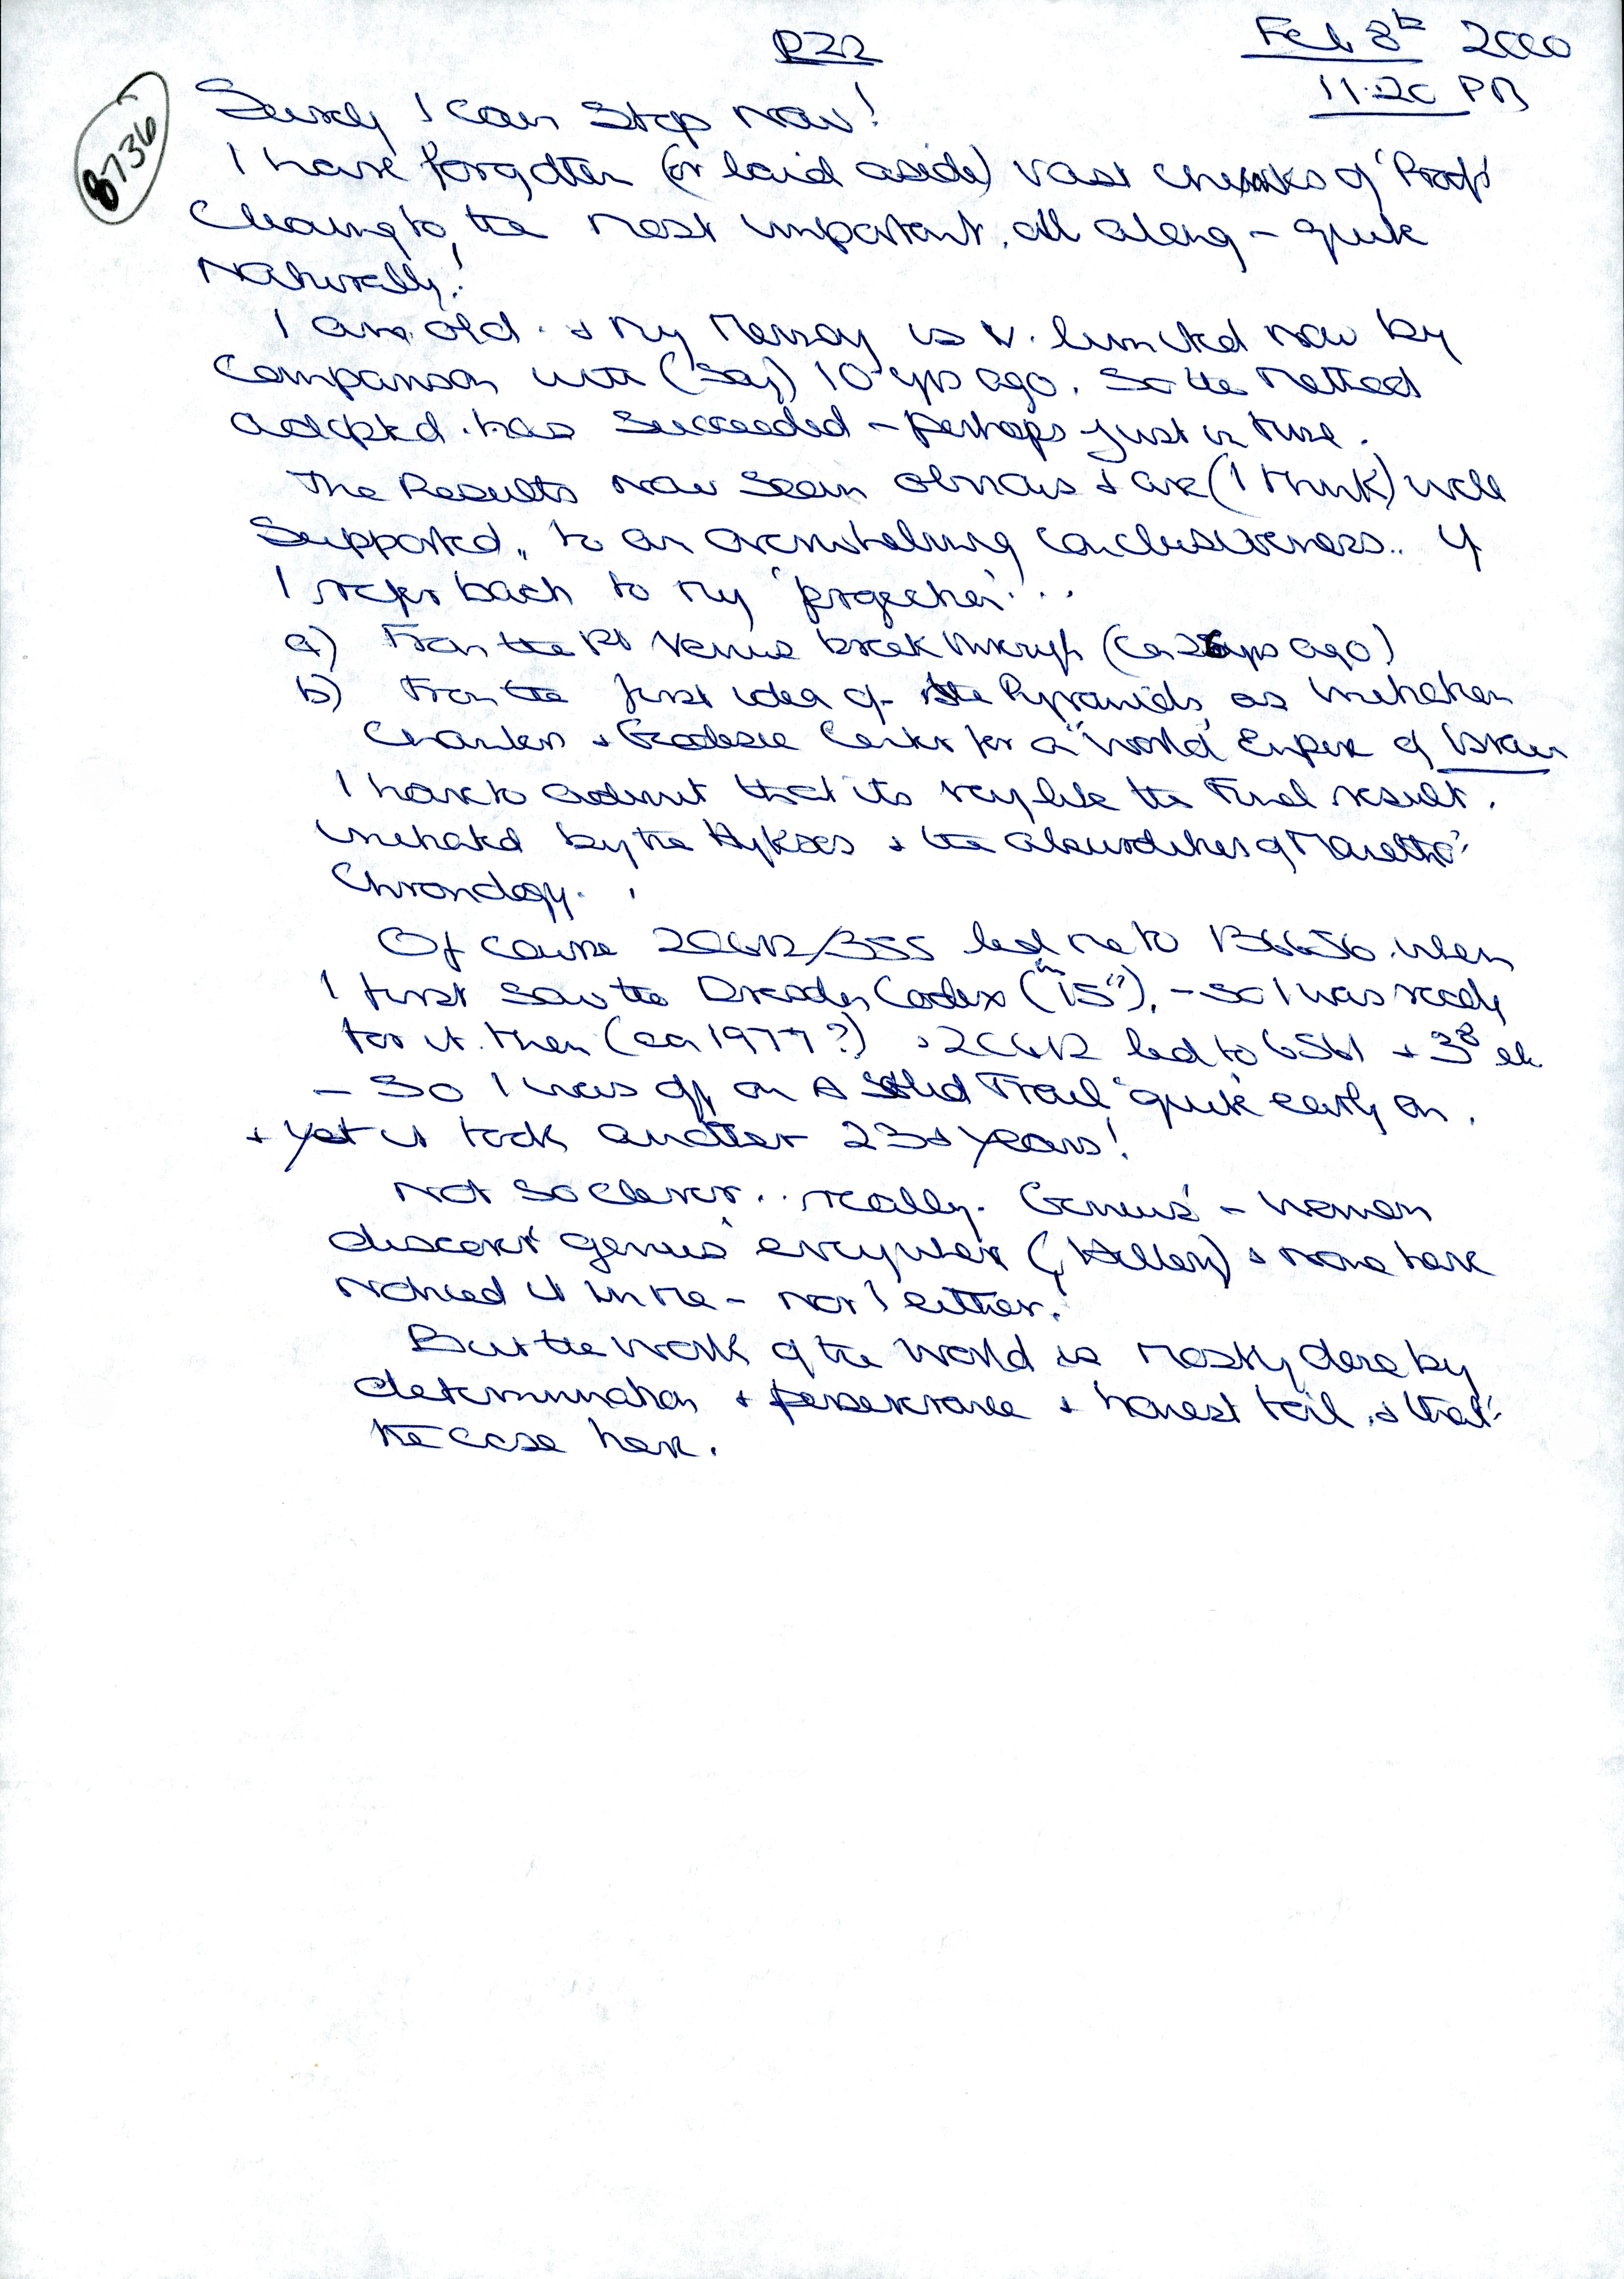 P22
Feb 8th 2000
11.20 PM
8736
Surely I can Stop Now!
I have forgotten (or laid aside) vast chunks of 'Proofs'
Clinging to, the most important, all along - quite
Naturally!
I am old. & My Memory is v. limited now by
Comparison with (say) 10 yrs ago. So the Method
adopted. has Succeeded - perhaps just in time.
The Results now seem obvious & are (I think) well
Supported, to an overwhelming conclusiveness.. If
I refer back to my 'projection'...
a) From the Venus breakthrough (ca 26 yrs ago)
b) From the first idea of the Pyramids, as initiation
Chambers & Geodesic Center for a "World Empire of
I have to admit that its very like the Final result.
initiated by the Hyksos & the absurdities of Manetho's
Chronology.
Of course 20612/355 led me to 136656. when
I first saw the Dresden Codex (in "15"?), - so I was ready
for it. then (ca 1977?) 20612 led to 6561 + 3^8 etc.
- So I was off on A Solid Trail "quite early on.
& yet it took another 23+ years!
Not so clever.. really. Genius' - Women
discover 'genius' everywhere & none have
Noticed it in me - nor I either.
But the work of the World is mostly done by
determination & perseverance & honest toil, & that's
the case here.